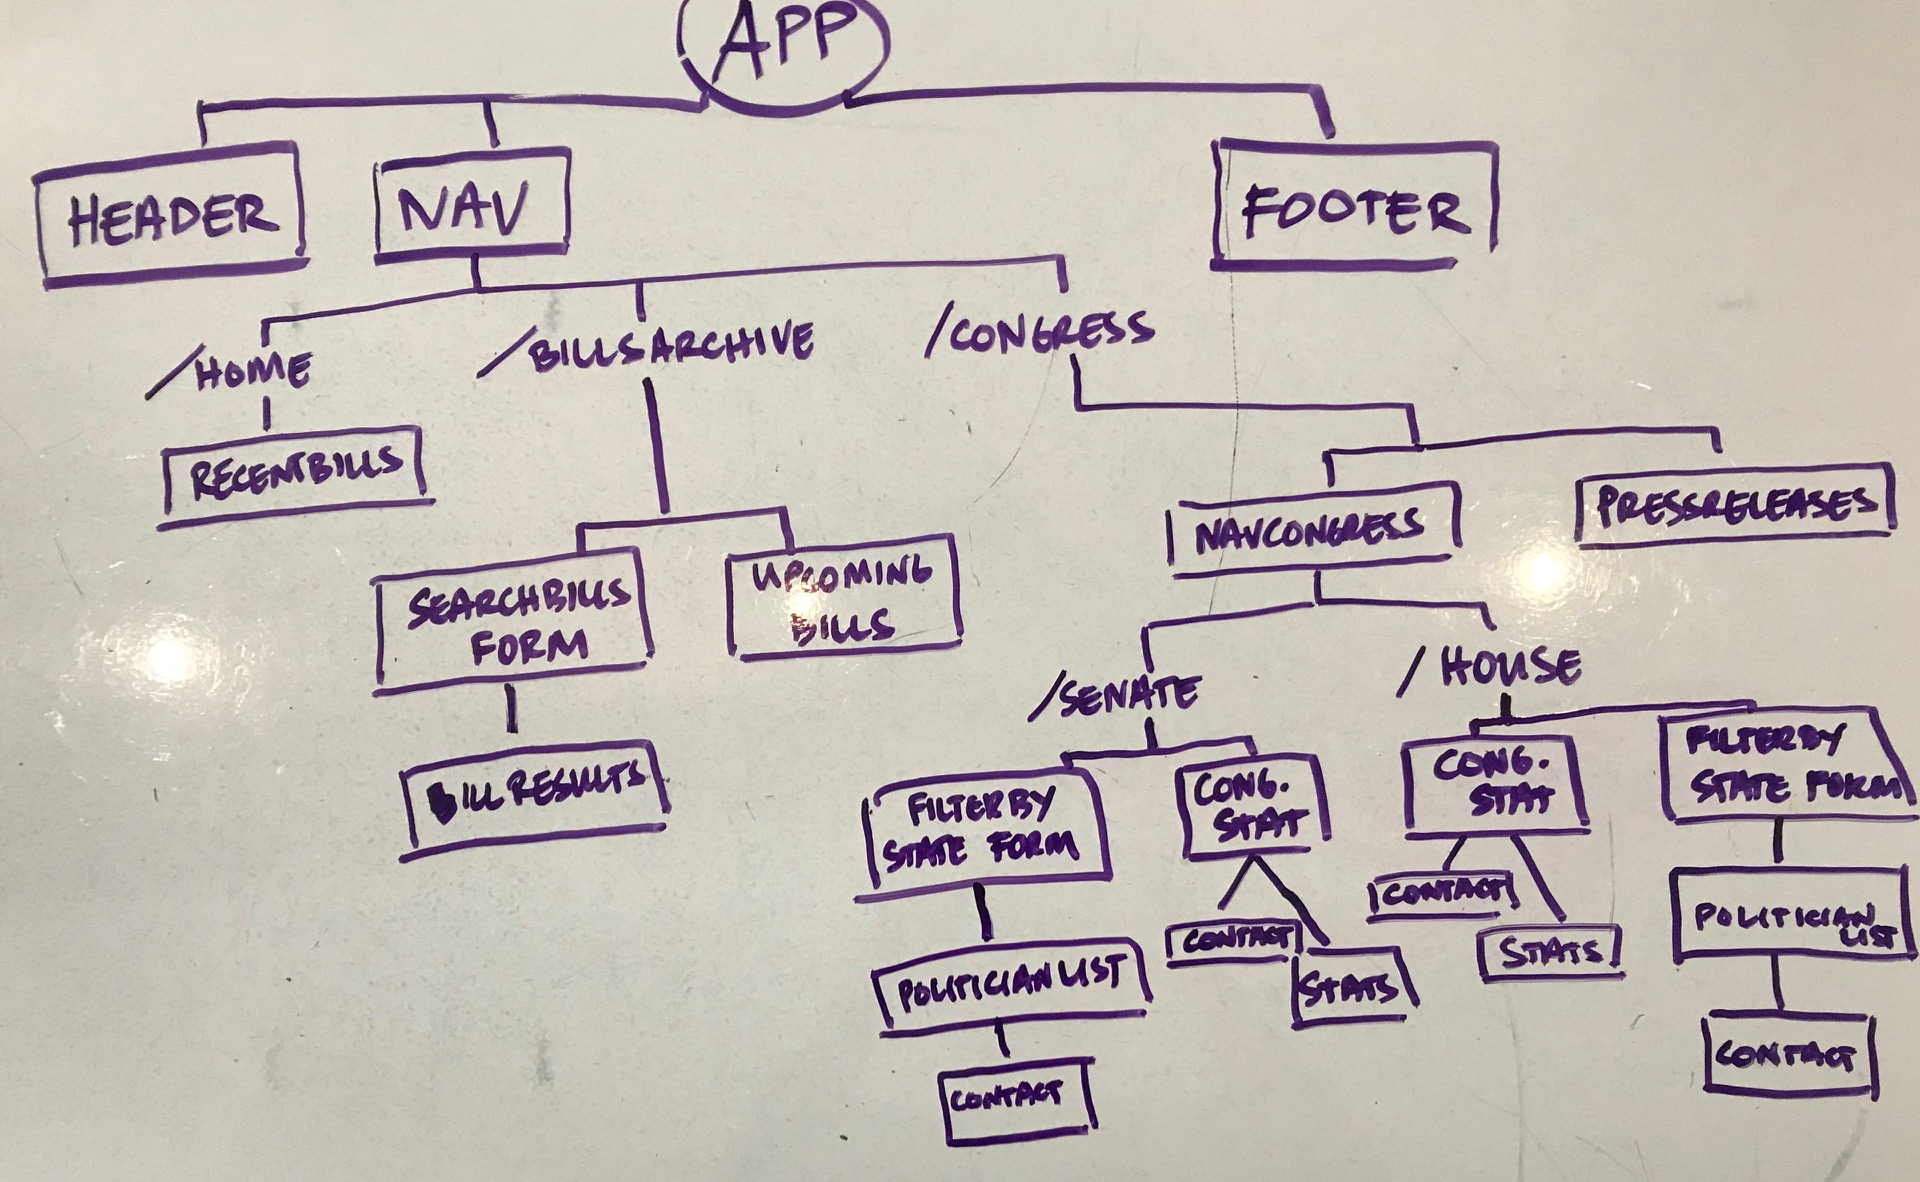 APP
HEADER
NAV
FOOTER
/HOME
/BILLSARCHIVE
/CONGRESS
RECENTBILLS
SEARCHBILLS
FORM
UPCOMING
BILLS
BILLRESULTS
NAVCONGRESS
PRESSRELEASES
/SENATE
/HOUSE
FILTERBY
STATE FORM
CONG.
STAT
CONG.
STAT
FILTERBY
STATE FORM
POLITICIANLIST
CONTACT
STATS
CONTACT
STATS
POLITICIAN
LIST
CONTACT
CONTACT